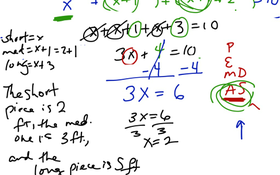 short=x
med=x+1=2+1
long=x+3
The short
piece is 2
ft, the med.
one is 3ft,
and the
long piece is 5ft
x+x+1+x+3=10
3x+4=10
-4 -4
3x=6
3x=6
3 3
x=2
P
E
MD
AS